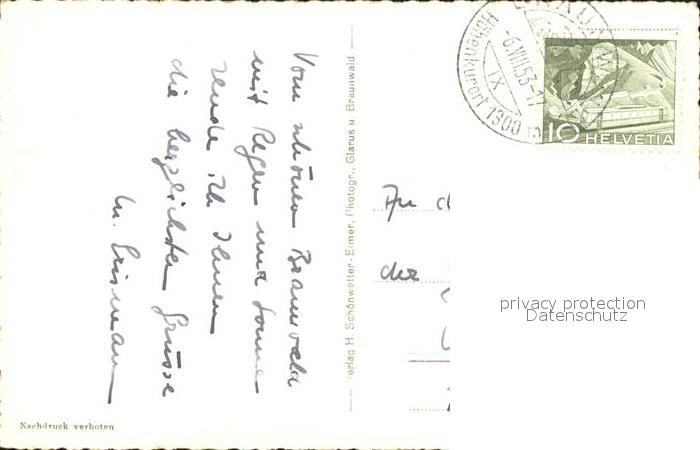 Vom schönen Braunwald
mit Regen und Sonne
sende ich Ihnen
die herzlichsten Grüsse
Nachdruck verboten
Verlag H. Schönwetter-Elmer, Photogr., Glarus u. Braunwald
An d
der
-6.VIII.53-17
IX
Höhenkurort 1300 m
10 HELVETIA
privacy protection
Datenschutz